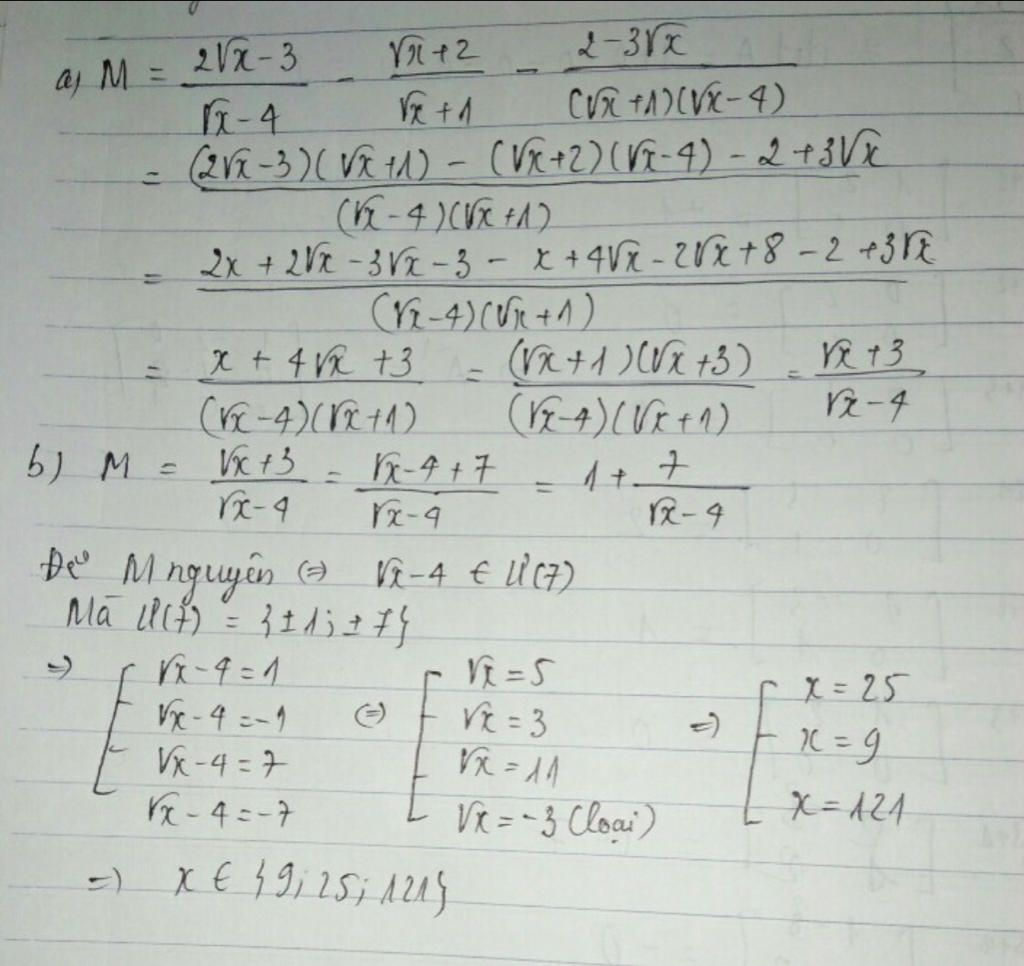 a) M = (2√x - 3)/(√x - 4) - (√x + 2)/(√x + 1) - (2 - 3√x)/((√x + 1)(√x - 4))
= ((2√x - 3)(√x + 1) - (√x + 2)(√x - 4) - 2 + 3√x)/((√x - 4)(√x + 1))
= (2x + 2√x - 3√x - 3 - x + 4√x - 2√x + 8 - 2 + 3√x)/((√x - 4)(√x + 1))
= (x + 4√x + 3)/((√x - 4)(√x + 1)) = ((√x + 1)(√x + 3))/((√x - 4)(√x + 1)) = (√x + 3)/(√x - 4)
b) M = (√x + 3)/(√x - 4) = (√x - 4 + 7)/(√x - 4) = 1 + 7/(√x - 4)
Để M nguyên (=) √x - 4 ∈ Ư(7)
Mà Ư(7) = {±1; ±7}
=) [ √x - 4 = 1 (=) [ √x = 5 =) [ x = 25
√x - 4 = -1 √x = 3 x = 9
√x - 4 = 7 √x = 11 x = 121
√x - 4 = -7 √x = -3 (loại)
=) x ∈ {9; 25; 121}